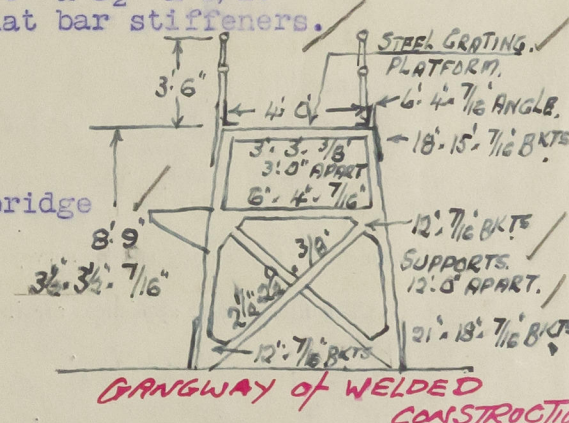 at bar stiffeners.
STEEL GRATING.
PLATFORM.
3'·6"
4'·0"
6"·4"·7/16" ANGLE.
18"·15"·7/16" BKTS.
3"·3"·3/8"
3'·0" APART
6"·4"·7/16"
bridge
8'·9"
12"·7/16" BKTS
3½"·3½"·7/16"
3/8"
2½"·2½"
SUPPORTS.
12'·0" APART.
21"·18"·7/16" BKTS.
12"·7/16" BKTS
GANGWAY of WELDED
CONSTRUCTIO